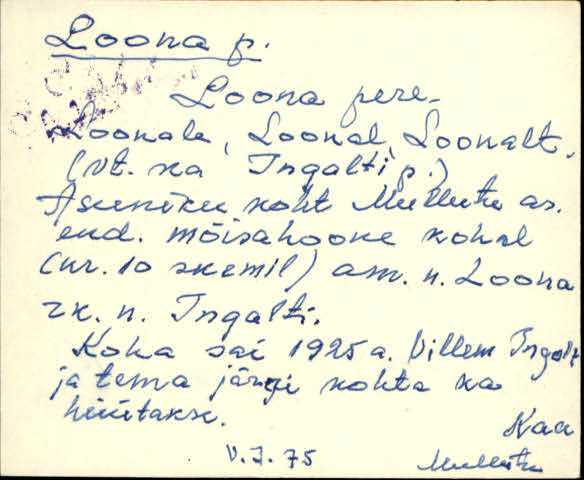 Loona p.
Loona pere -
Loonale, Loonal, Loonalt.
(vt. ka Ingalti p.)
Asuniku koht Mullutu as.
end. mõisahoone kohal
(nr. 10 skemil) am. n. Loona
rk. n. Ingalti.
Koha sai 1925 a. Villem Ingalt
ja tema järgi kohta ka
hüütakse.
Kaa
V. I. 75
Mullutu